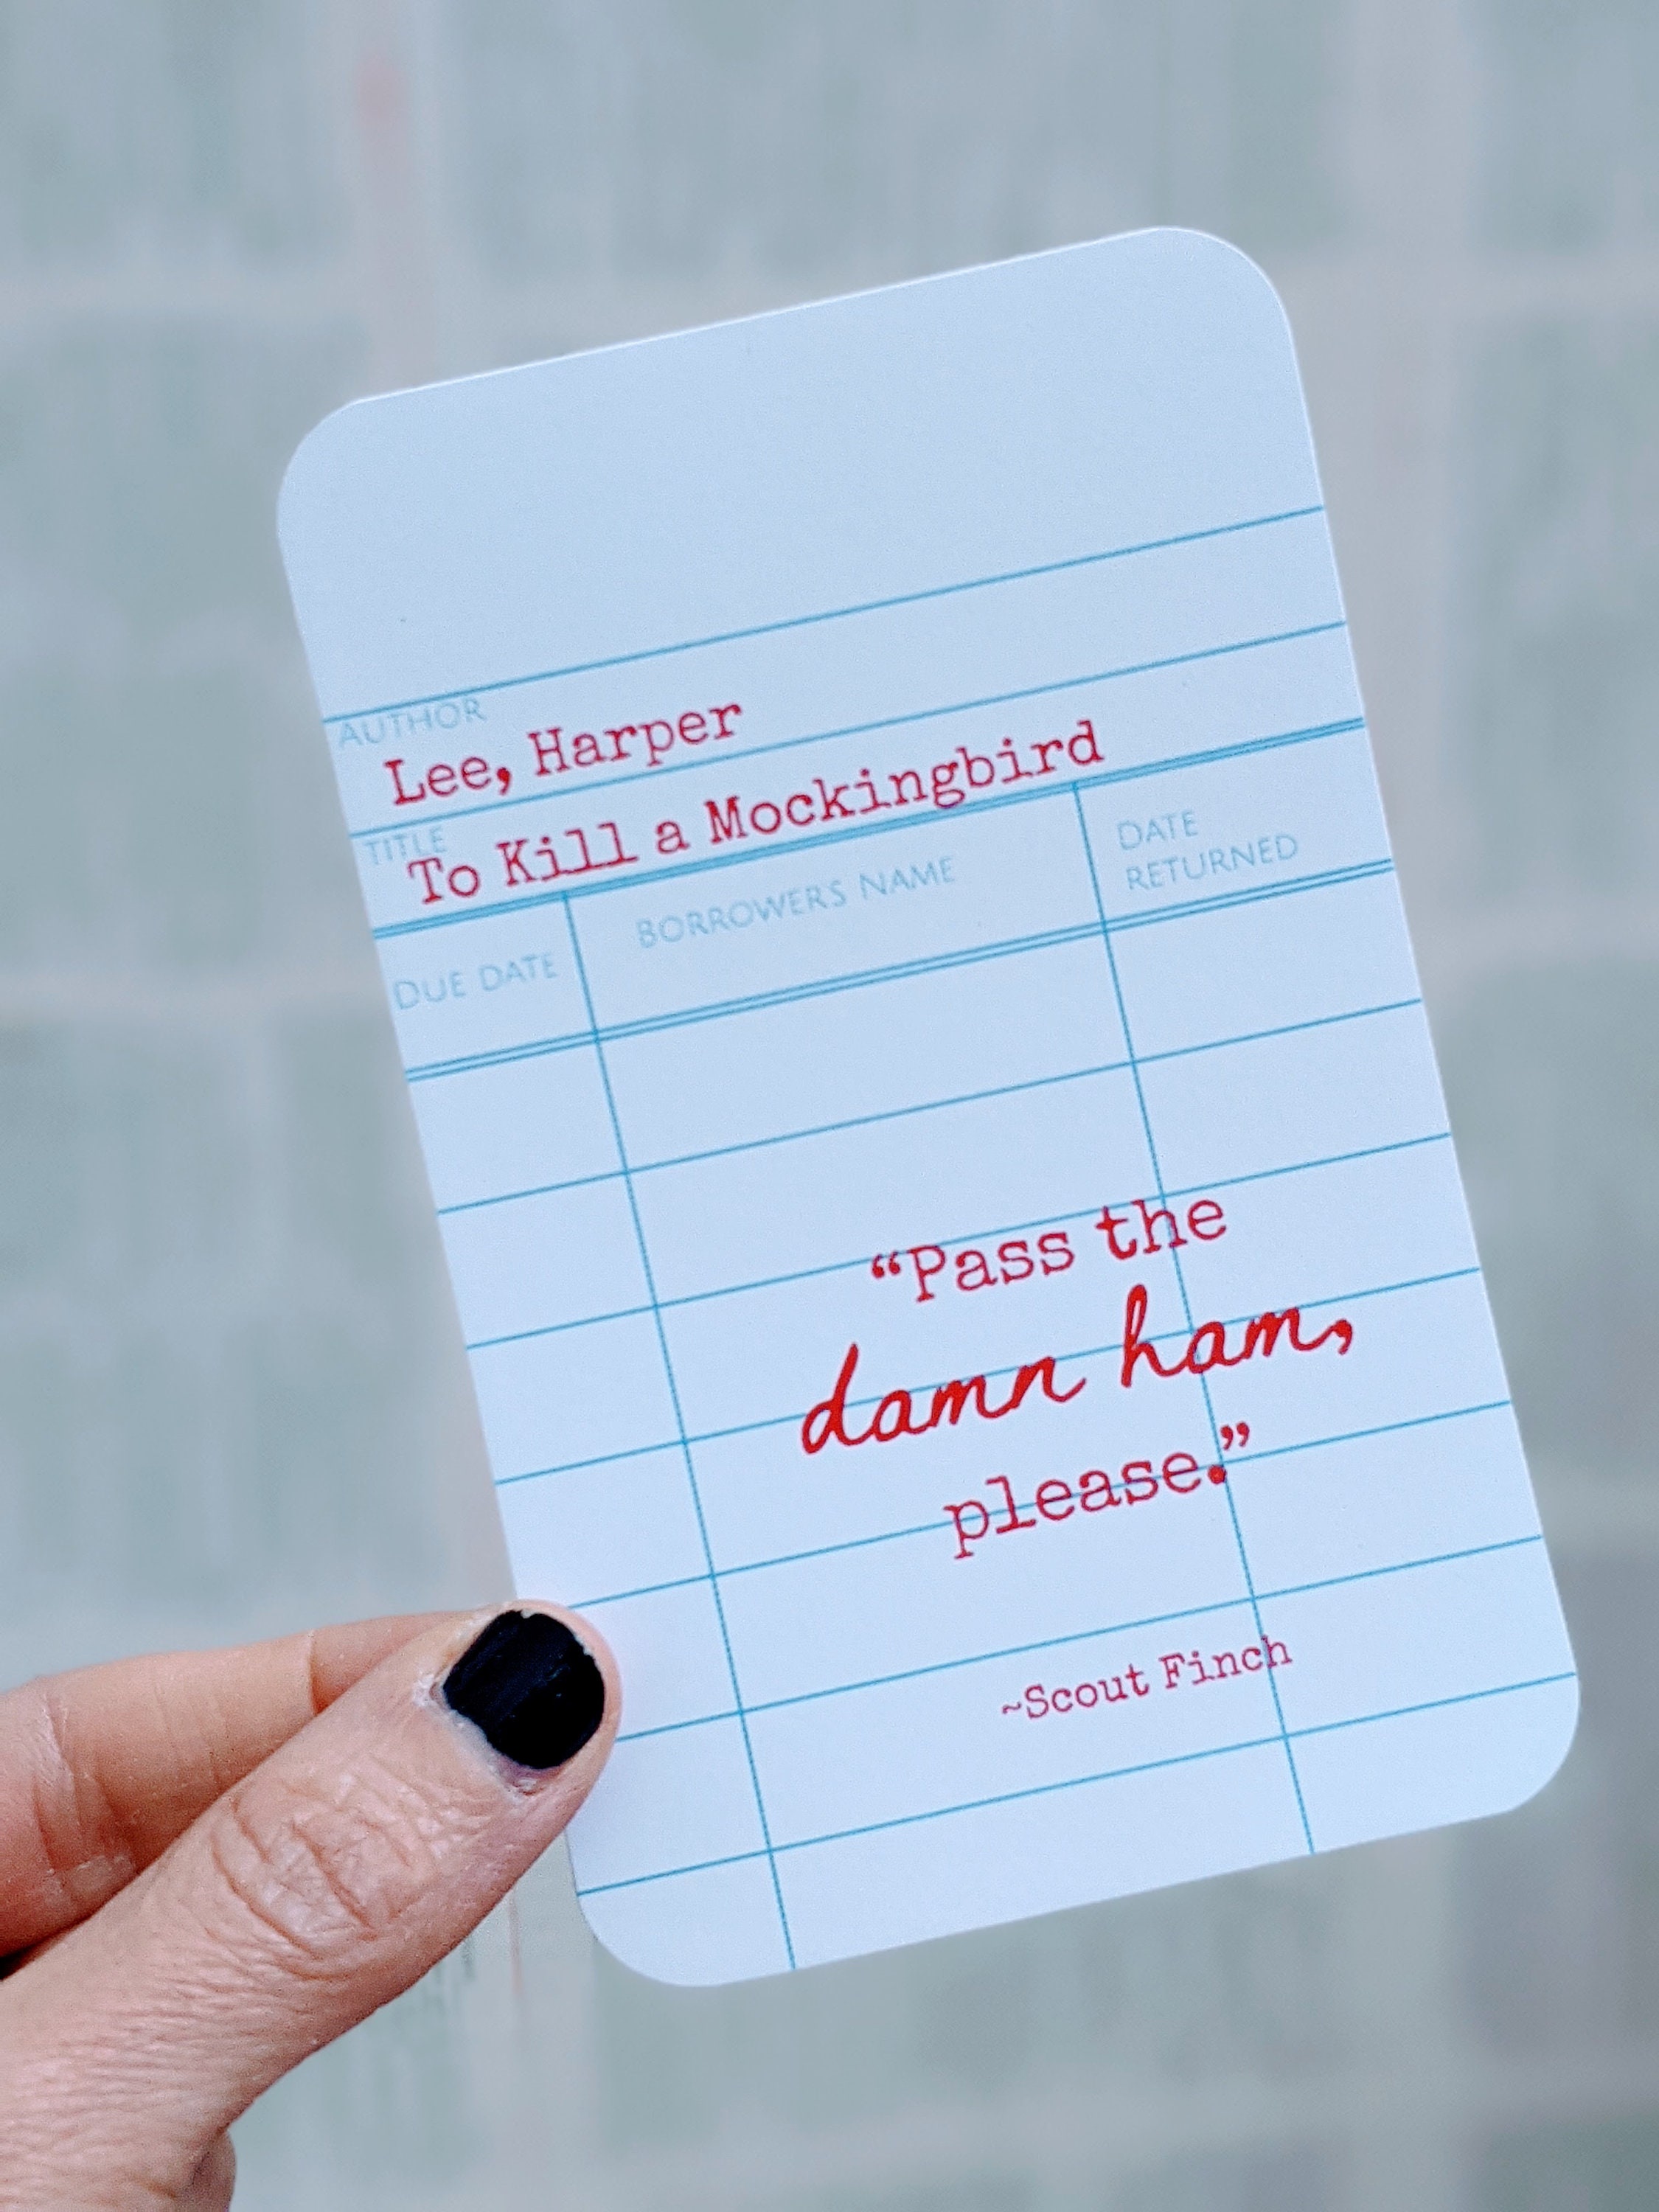 AUTHOR
Lee, Harper
TITLE
To Kill a Mockingbird
DUE DATE
BORROWERS NAME
DATE
RETURNED
“Pass the
damn ham,
please.”
~Scout Finch